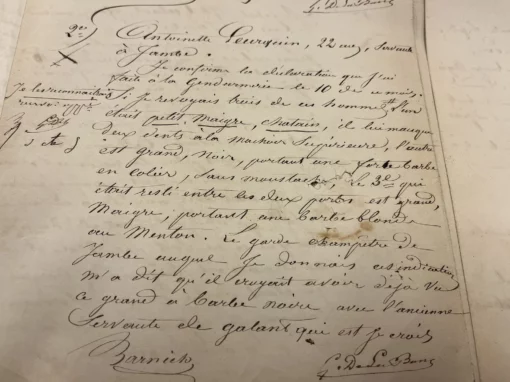 G. De Le Bons
2e/ Antoinette Leurquin, 22 ans, servante
à Jambe.
Je confirme la déclaration que j'ai
faite à la Gendarmerie le 10 de ce mois.
Je les reconnaitrais
Si je revoyais trois de ces hommes l'un
était petit, Maigre, chatain, il lui manque
deux dents à la machoir Supérieure, l'autre
est grand, Noir, portant une forte barbe
en colier, sans moustache, le 3e qui
était resté entre les deux portes est grand,
Maigre, portant une barbe blonde
au Menton. Le garde champêtre de
Jambe auquel je donnais ces indications
m'a dit qu'il croyait avoir déjà vu
ce grand à barbe noire avec l'ancienne
Servante de galant qui est je crois
Barnich
G. De Le Bons